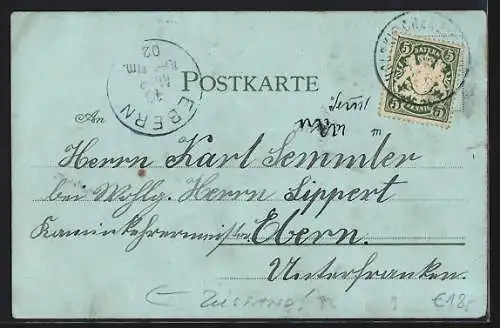 5 BAYERN 5
PFENNIG
EBERN
10
02
POSTKARTE
An
Herrn Karl Semmler
bei Wohlg. Herrn Lippert
Kaminkehrermeister Ebern.
Unterfranken.
← ZUSTAND!
€18,-